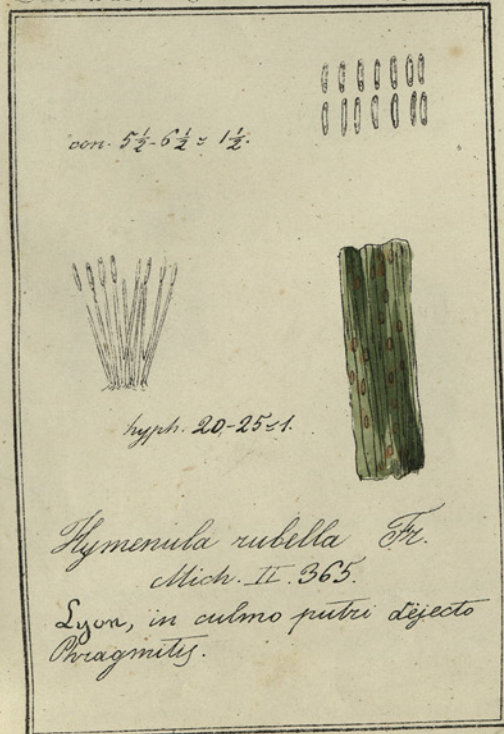 con. 5½-6½ = 1½.
hyph. 20-25 = 1.
Hymenula rubella Fr.
Mich. II. 365.
Lyon, in culmo putri dejecto
Phragmitis.